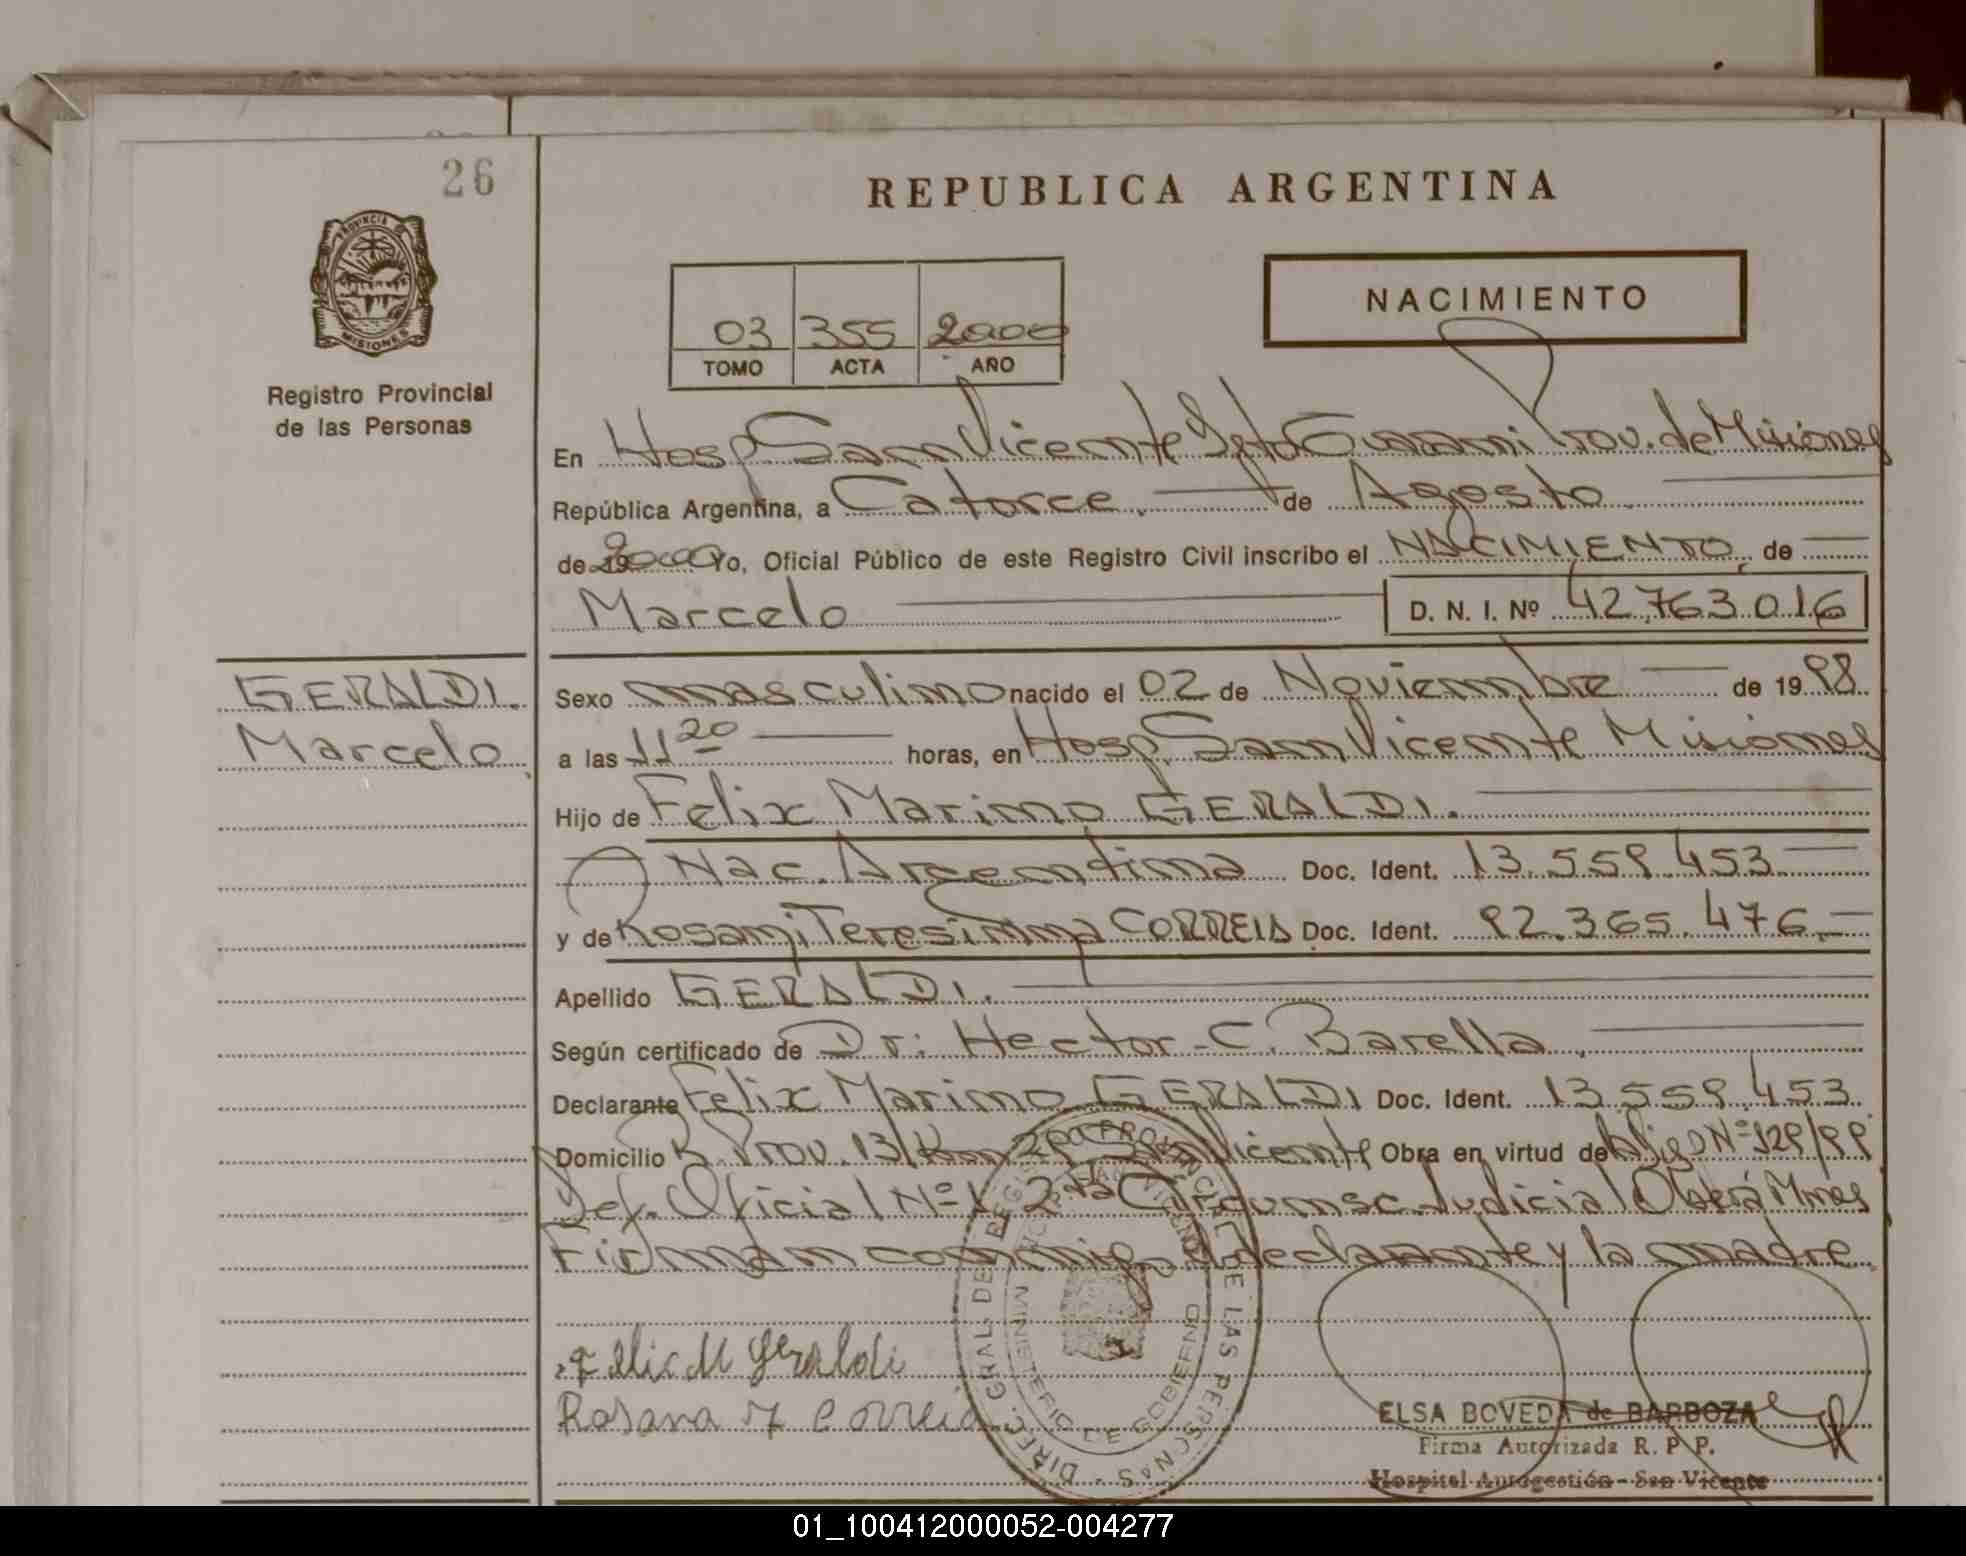 26
REPUBLICA ARGENTINA
PROVINCIA DE
MISIONES
Registro Provincial
de las Personas
NACIMIENTO
03 355 2000
TOMO ACTA AÑO
En Hosp San Vicente Dpto Guarani Prov. de Misiones
República Argentina, a Catorce. de Agosto
de 19 2000 Yo, Oficial Público de este Registro Civil inscribo el NACIMIENTO de
Marcelo D. N. I. Nº 42.763.016
GERALDI.
Marcelo
Sexo masculino nacido el 02 de Noviembre de 19 98
a las 11 20 horas, en Hosp. San Vicente Misiones
Hijo de Felix Marino GERALDI.
Nac. Argentina Doc. Ident. 13.559.453
y de Teresinna CORREIA Doc. Ident. 92.365.476.
Apellido GERALDI.
Según certificado de Dr: Hector C. Barella
Declarante Felix Marino GERALDI Doc. Ident. 13.559.453
Domicilio R. Prov. 13 Km 29 San Vicente Obra en virtud de Nº 129/99
Def. Oficial Nº 1 2da Circunsc. Judicial Oberá Mnes
Firman conmigo el declarante y la madre
Felix M Geraldi
Rosana T Correia
DIREC. GRAL. DEL REGISTRO PROVINCIAL DE LAS PERSONAS
MINISTERIO DE GOBIERNO
ELSA BOVEDA de BARBOZA
Firma Autorizada R. P. P.
Hospital Autogestión - San Vicente
01_100412000052-004277